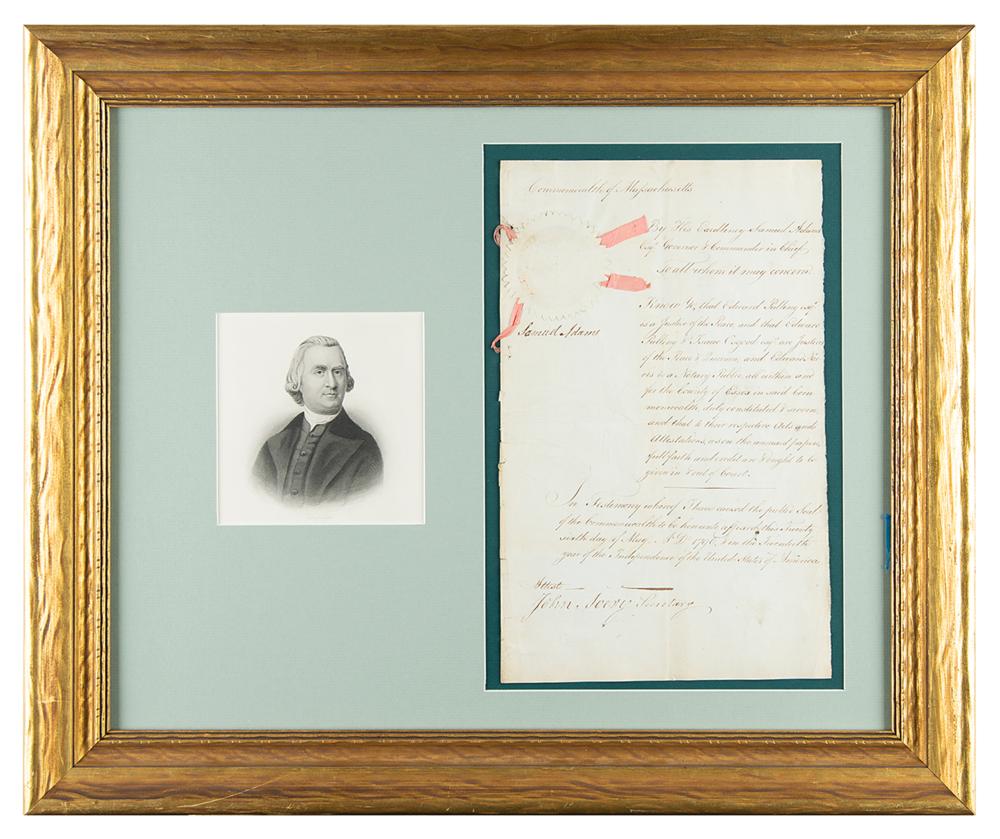 Commonwealth of Massachusetts
By His Excellency Samuel Adams
Esqr. Governor & Commander in Chief,
To all whom it may concern
Know Ye, that Edward Pulling esqr.
is a Justice of the Peace, and that Edward
Pulling & Isaac Osgood esqrs. are Justices
of the Peace & Quorum, and Edward Nor
ris is a Notary Public, all within and
for the County of Essex in said Com
monwealth duly constituted & sworn,
and that to their respective Acts and
Attestations, as on the annexed paper,
full faith and credit are & ought to be
given in & out of Court.
Samuel Adams
In Testimony whereof I have caused the public Seal
of the Commonwealth to be hereunto affixed this Twenty
sixth day of May A.D. and in the
year of the Independence of the United States of America
Attest
John Avery Secretary